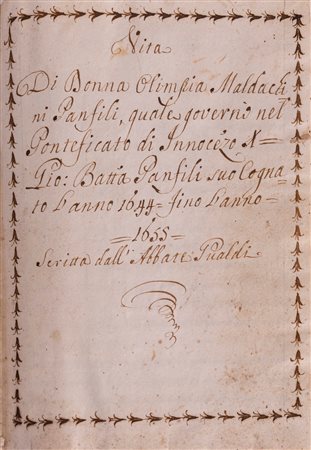 Vita
Di Donna Olimpia Maldach
ni Panfili, quale governò nel
Ponteficato di Innocezo X
Gio: Batta Panfili suo Cogna-
to l'anno 1644 = fino l'anno =
= 1655 =
Scritta dall'Abbate Gualdi.